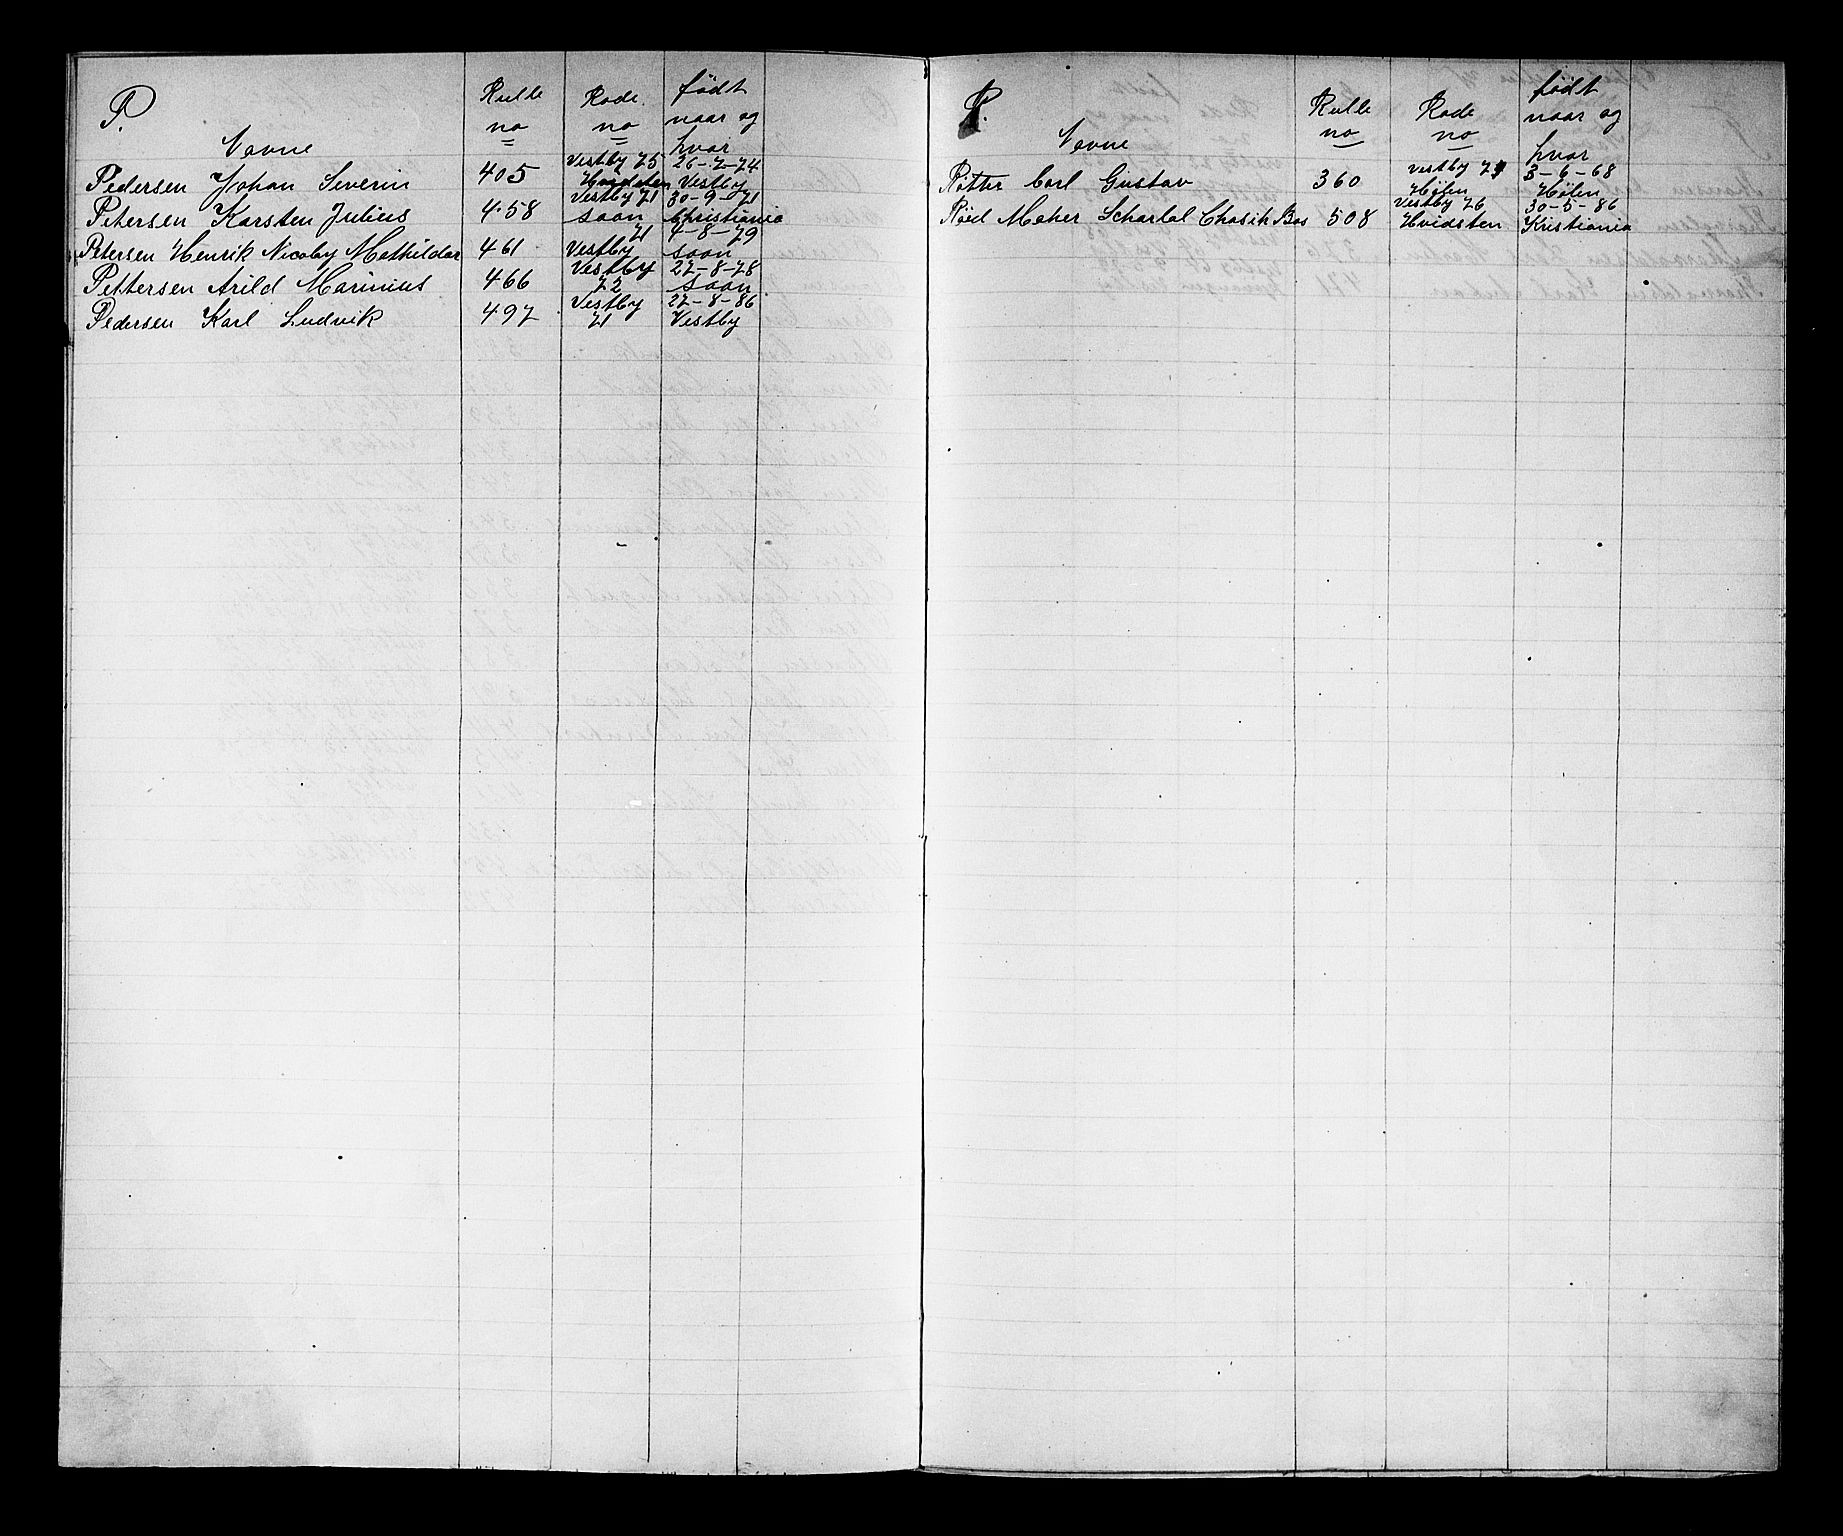 P.
Navne
Rulle no
Rode no
født naar og hvar
Pedersen Johan Severin 405 Vestby 75 Hvidsten 26-7-74 Vestby
Petersen Karsten Julius 458 Vestby 71 Saan 30-9-71 Christiania
Petersen Henrik Nicoby Mathildar 461 71 Vestby 4-8-79 Saan
Pettersen Arild Marinius 466 Vestby 72 27-8-78 Saan
Pedersen Karl Ludvik 497 Vestby 71 27-8-86 Vestby
R.
Navne
Rulle no
Rode no
født naar og hvar
Røtter Carl Gustav 360 Vestby 71 Hølen 3-6-68 Hølen
Røed Maher 508 Vestby 76 Hvidsten 30-5-86 Kristiania